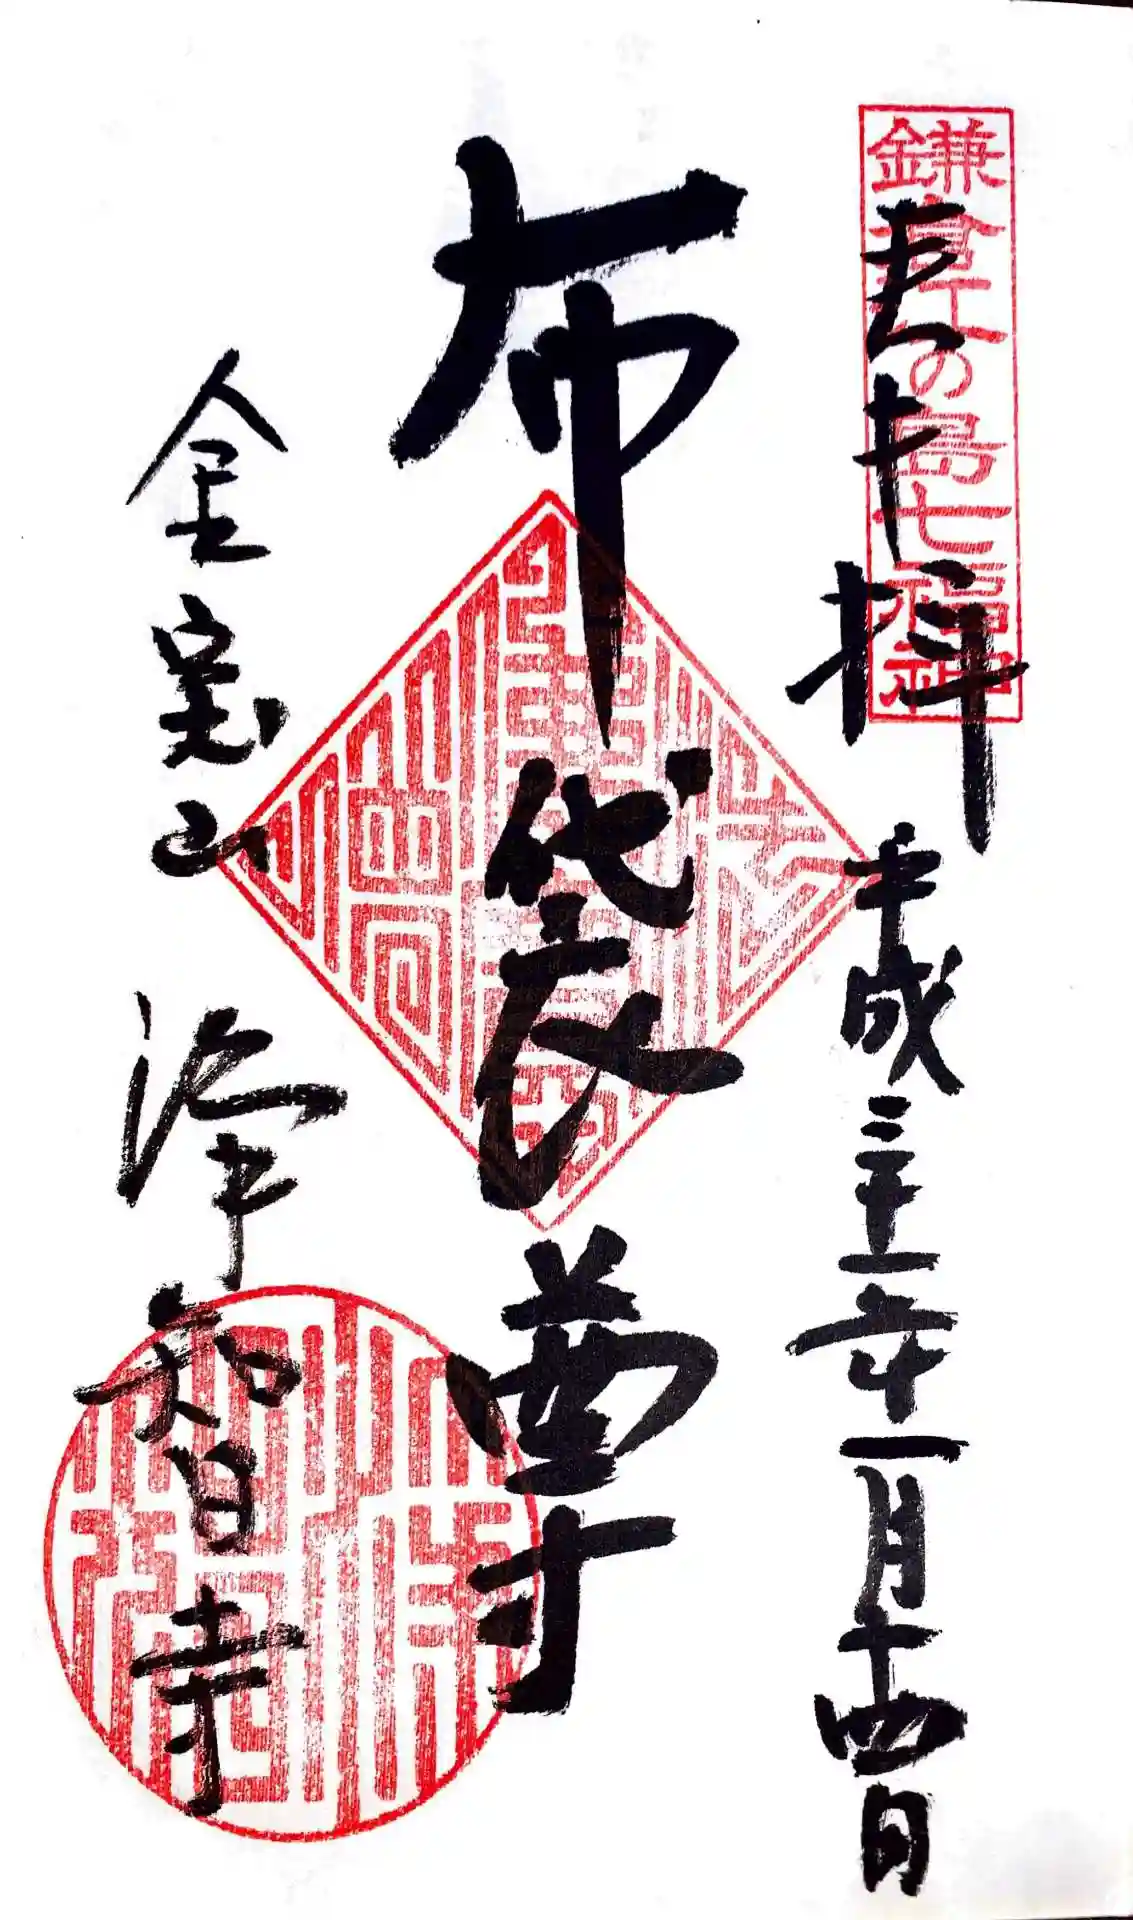 鎌倉江の島七福神
奉拝 平成三十一年一月十四日
布袋尊
金寶山 浄智寺